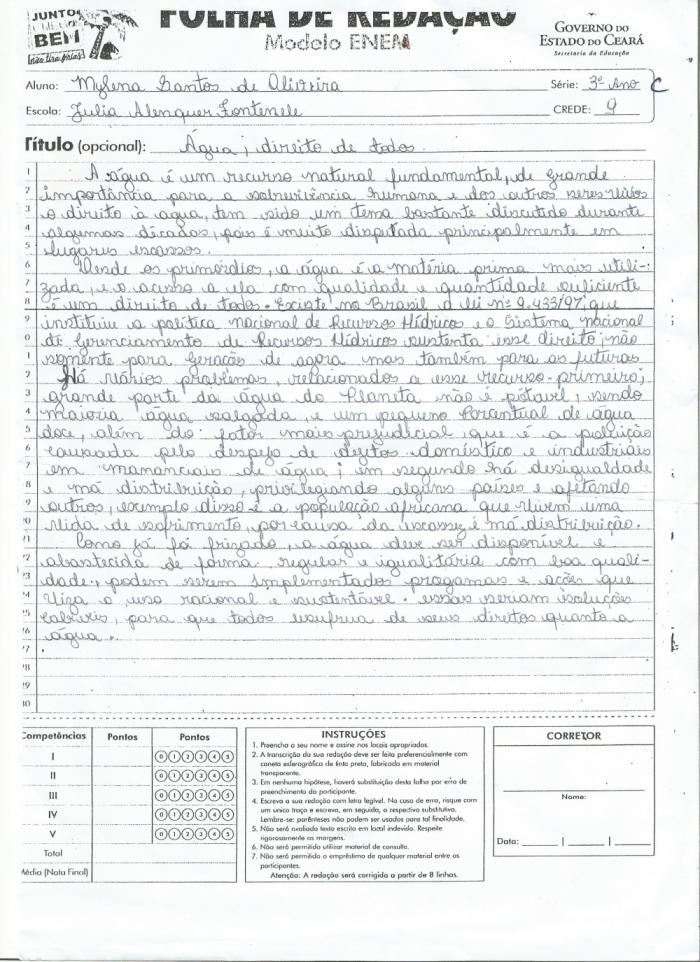 JUNTO
BEM
FOLHA DE REDAÇÃO
Modelo ENEM
GOVERNO DO
ESTADO DO CEARÁ
Secretaria da Educação
Aluno: Mylena Santos de Oliveira Série: 3º Ano C
Escola: Julia Alenquer Fontenele CREDE: 9
Título (opcional): Água, direito de todos.
1 A água é um recurso natural fundamental, de grande
2 importância para a sobrevivência humana e dos outros seres vivos
3 o direito à agua, tem sido um tema bastante discutido durante
4 algumas décadas, pois é muito disputada principalmente em
5 lugares escassos.
6 Desde os primórdios, a água é a matéria prima mais utili-
7 zada, e o acesso a ela com qualidade e quantidade suficiente
8 é um direito de todos. Existe no Brasil a lei nº 9.433/97, que
9 instituiu a política nacional de Recursos Hídricos e o Sistema nacional
0 de Gerenciamento de Recursos Hídricos sustenta esse direito, não
1 somente para gerações de agora mas também para as futuras
2 Há vários problemas, relacionados a esse recurso - primeiro,
3 grande parte da água do Planeta não é pótavel, sendo
4 maioria água salgada, e um pequeno Porcentual de água
5 doce, além do fator mais prejudicial que é a poluição
6 causada pelo despejo de dejetos doméstico e industriais
7 em mamanciais de água; em segundo há desigualdade
8 e má distribuição, privilegiando alguns países e afetando
9 outros, exemplo disso é a população africana que vivem uma
0 vida de sofrimento, por causa da escassez e má distribuição.
1 Como já foi frizado, a água deve ser disponível e
2 abastecida de forma regular e igualitária com boa quali-
3 dade, podem serem implementados progamas e ações que
4 viza o uso racional e sustentável. essas seriam soluções
5 cabíveis, para que todos usufrua de seus direitos quanto a
6 água.
7
8
9
0
Competências Pontos Pontos
I 0 1 2 3 4 5
II 0 1 2 3 4 5
III 0 1 2 3 4 5
IV 0 1 2 3 4 5
V 0 1 2 3 4 5
Total
Média (Nota Final)
INSTRUÇÕES
1. Preencha o seu nome e assine nos locais apropriados.
2. A transcrição da sua redação deve ser feita preferencialmente com
caneta esferográfica de tinta preta, fabricada em material
transparente.
3. Em nenhuma hipótese, haverá substituição desta folha por erro de
preenchimento do participante.
4. Escreva a sua redação com letra legível. No caso de erro, risque com
um único traço e escreva, em seguida, o respectivo substitutivo.
Lembre-se: parênteses não podem ser usados para tal finalidade.
5. Não será avaliado texto escrito em local indevido. Respeite
rigorosamente as margens.
6. Não será permitido utilizar material de consulta.
7. Não será permitido o empréstimo de qualquer material entre os
participantes.
Atenção: A redação será corrigida a partir de 8 linhas.
CORRETOR
Nome:
Data: ____ | ____ | ____